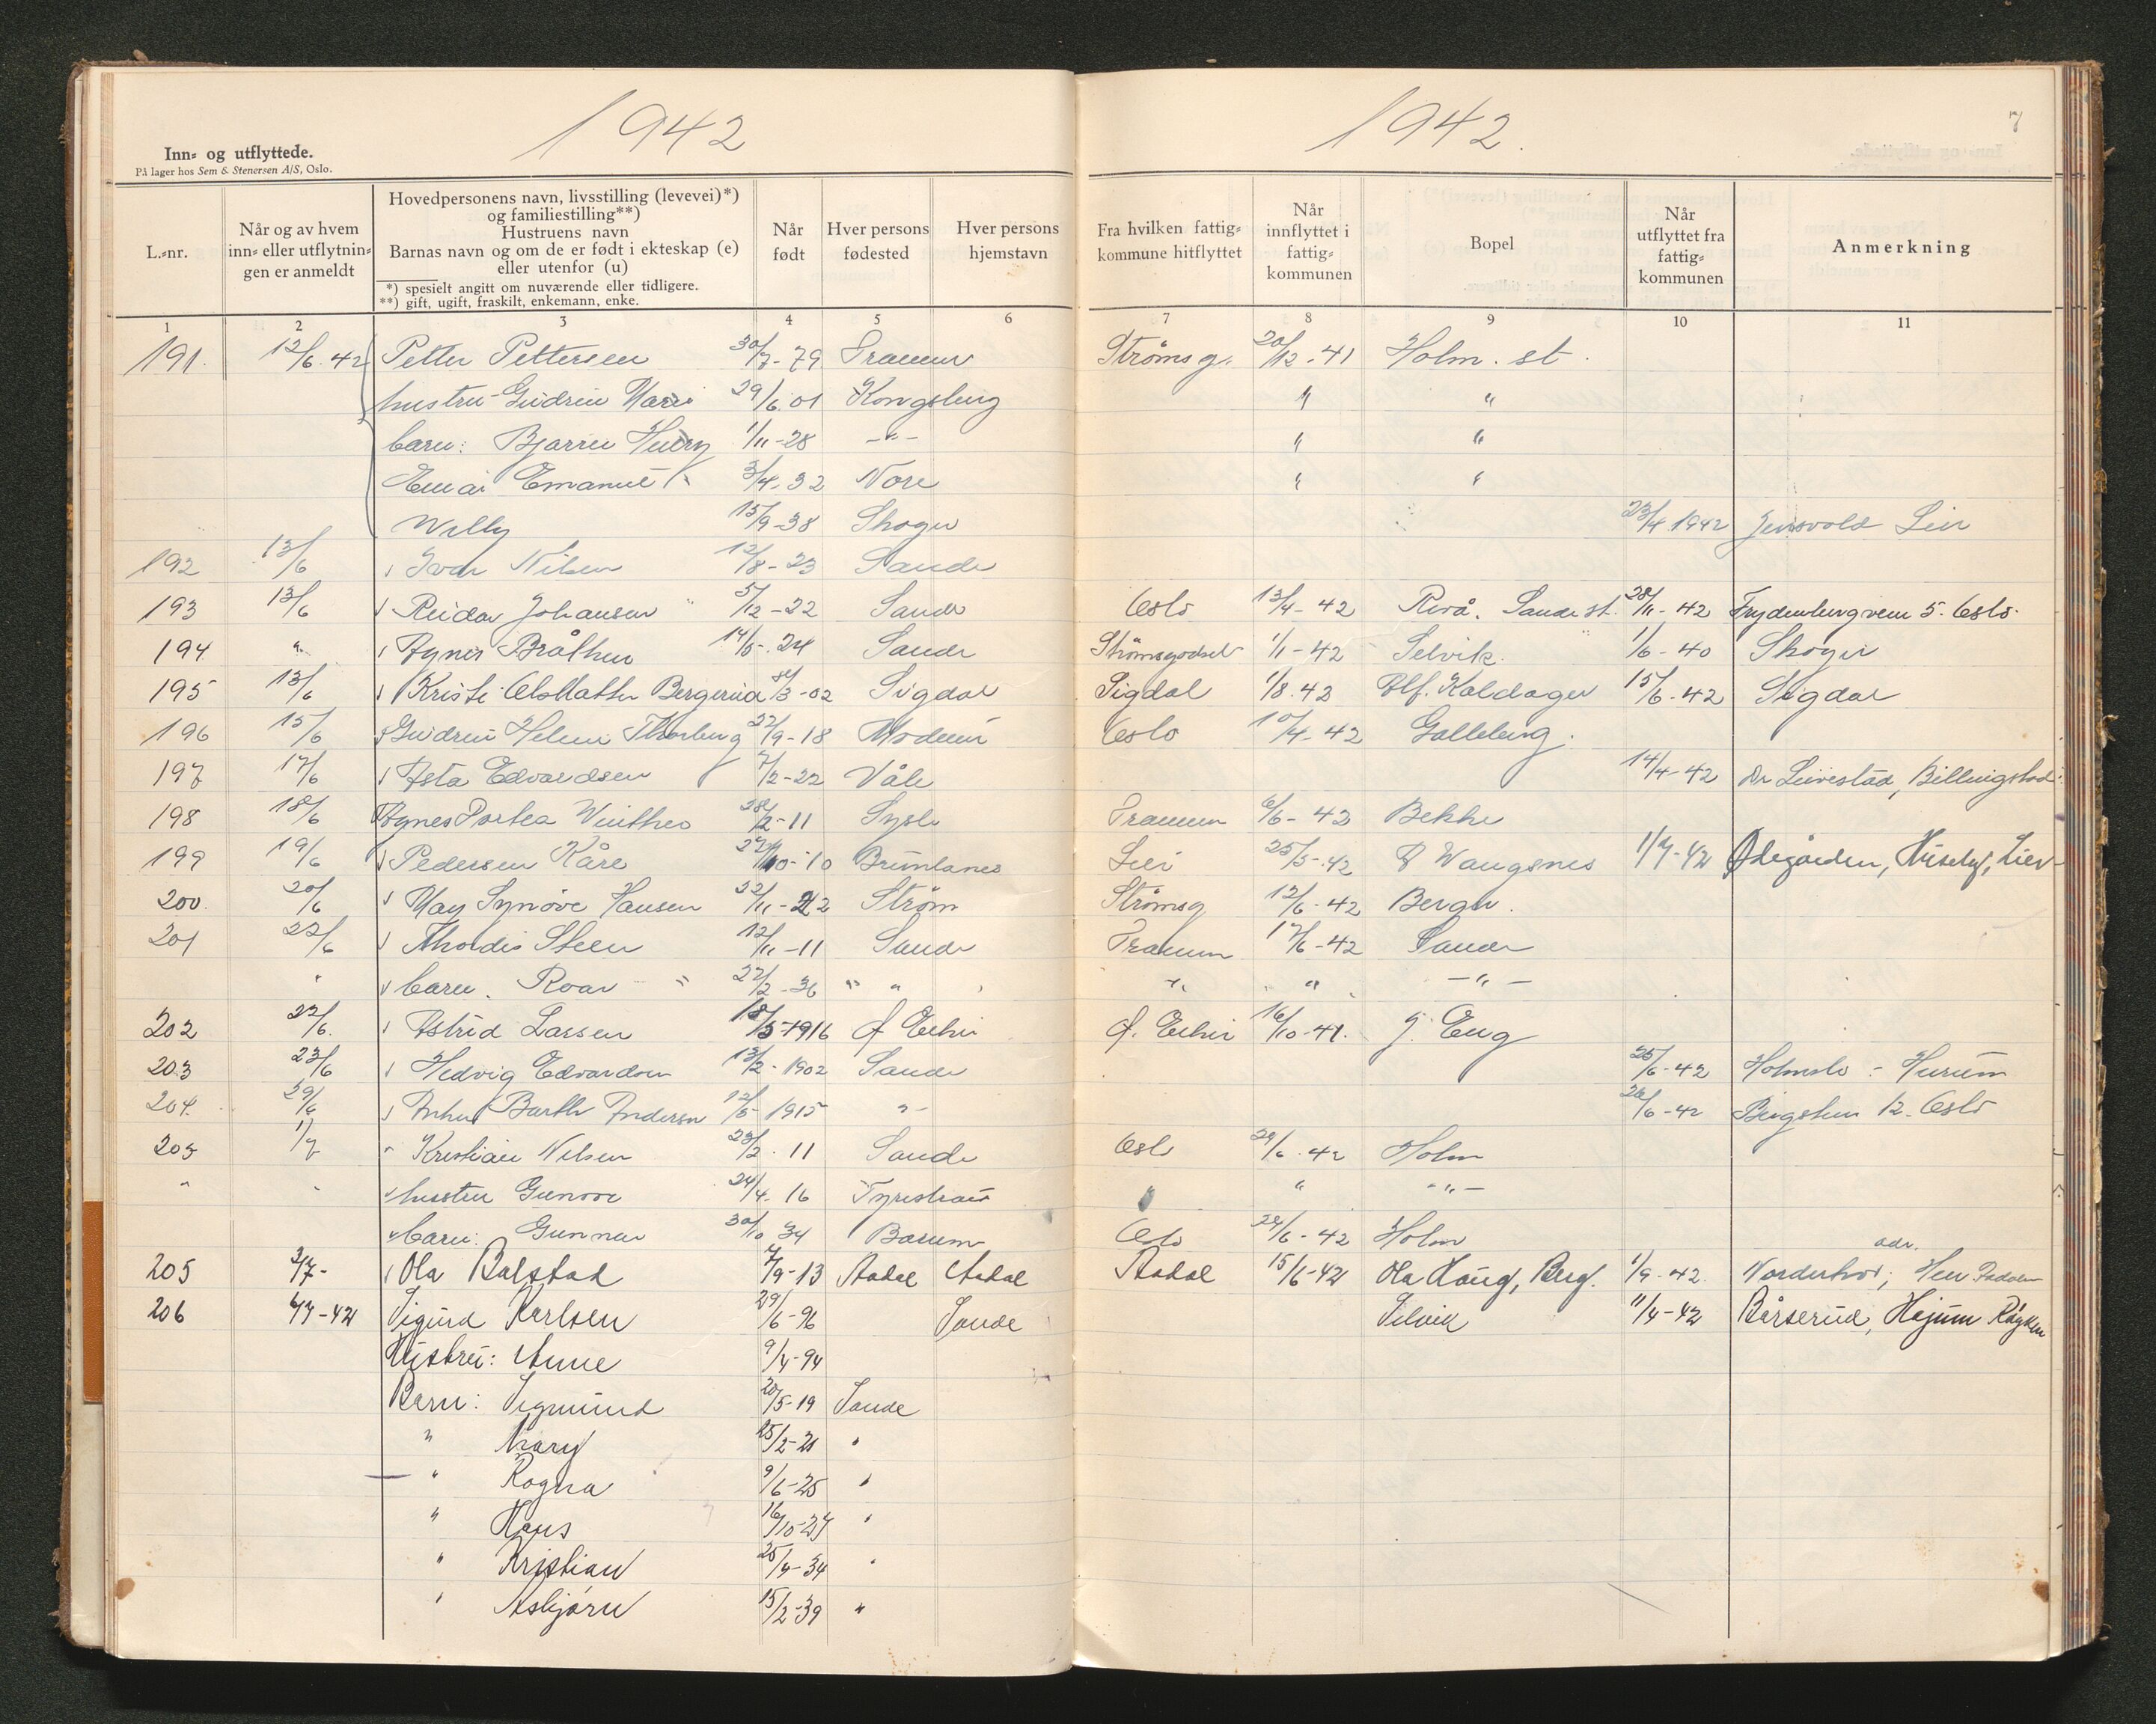 1942
1942.
7
Inn- og utflyttede.
På lager hos Sem & Stenersen A/S, Oslo.
L.-nr.
Når og av hvem inn- eller utflytnin-gen er anmeldt
Hovedpersonens navn, livsstilling (levevei)*)
og familiestilling**)
Hustruens navn
Barnas navn og om de er født i ekteskap (e)
eller utenfor (u)
*) spesielt angitt om nuværende eller tidligere.
**) gift, ugift, fraskilt, enkemann, enke.
Når født
Hver persons fødested
Hver persons hjemstavn
Fra hvilken fattig-kommune hitflyttet
Når innflyttet i fattig-kommunen
Bopel
Når utflyttet fra fattig-kommunen
Anmerkning
1 2 3 4 5 6 7 8 9 10 11
191. 12/6.42 Petter Pettersen 30/7-79 Drammen Strømsg. 20/12-41 Holm. st.
hustru Gudrun Marie 29/6.01 Kongsberg " "
barn: Bjarne Henry 1/11-28 -"- " "
Einar Emanuel 3/4-32 Nore " "
Willy 15/9-38 Skoger 23/4 1942 Lier
192 13/6 Ivar Nilsen 12/8-23 Sande
193 13/6 Reidar Johansen 5/12-22 Sande Oslo 13/4-42 Revå. Sande st. 28/11-42 Frydenbergveien 5. Oslo.
194 " Agnes Bråthen 14/5-24 Sande Strømsgodset 1/1-42 Selvik 1/6-40 Skoger
195 13/6 Kristi Bergerud 8/3-02 Sigdal Sigdal 1/8.42 Kaldager 15/6-42 Sigdal
196 15/6 Gudrun Helene Thorberg 22/9-18 Modum Oslo 10/4-42 Galleberg.
197 17/6 Asta Edvardsen 7/2-22 Våle 14/4-42 Dr Billingstad
198 18/6 Agnes 28/2-11 Drammen 6/6-42 Bekke
199 19/6 Pedersen Kåre 10-10 Brunlanes Lier 25/5-42 Wangsnes 1/7-42 Ødegården, Huseby, Lier
200. 20/6 May Synøve Hansen 22/11-22 Strøm Strømsg 12/6-42 Berger.
201 22/6 Thordis Steen 12/11-11 Sande Drammen 17/6-42 Sande
" barn. Roar " 22/2-36 " " " " -"-
202 22/6. Astrid Larsen 18/5-1916 Ø. Eiker Ø. Eiker 16/10-41. J. Eng
203 23/6 Hedvig Edvardsen 13/2-1902 Sande 25/6-42 Holmsbo - Hurum
204. 29/6 Barth Andersen 12/5-1915 "- 26/6-42 12. Oslo
205 1/7 " Kristian Nilsen 23/2.11 Sande Oslo 29/6.42 Holm
" " hustru Gunvor 24/4.16 Tyristrand " " -"-
barn: Gunnar 30/10 34 Bærum Oslo 29/6-42 Holm
205 3/7- Ola Balstad 7/9-13 Aadal Aadal Aadal 15/6-42 Ola Haug, Berg. 1/9-42. Norderhov; adr. Hen Aadalen
206 6/7-42 Sigurd Karlsen 29/6-96 Sande Selvik 11/4-42 Bårserud, Hajum Røyken
Hustru: Anne 9/4-94
Barn: Sigmund 20/5-19 Sande
" Mary 25/2-21 "
" Ragna 9/6-25 "
" Hans 16/10-27 "
" Kristian 25/4-34 "
" Asbjørn 15/2-39 "